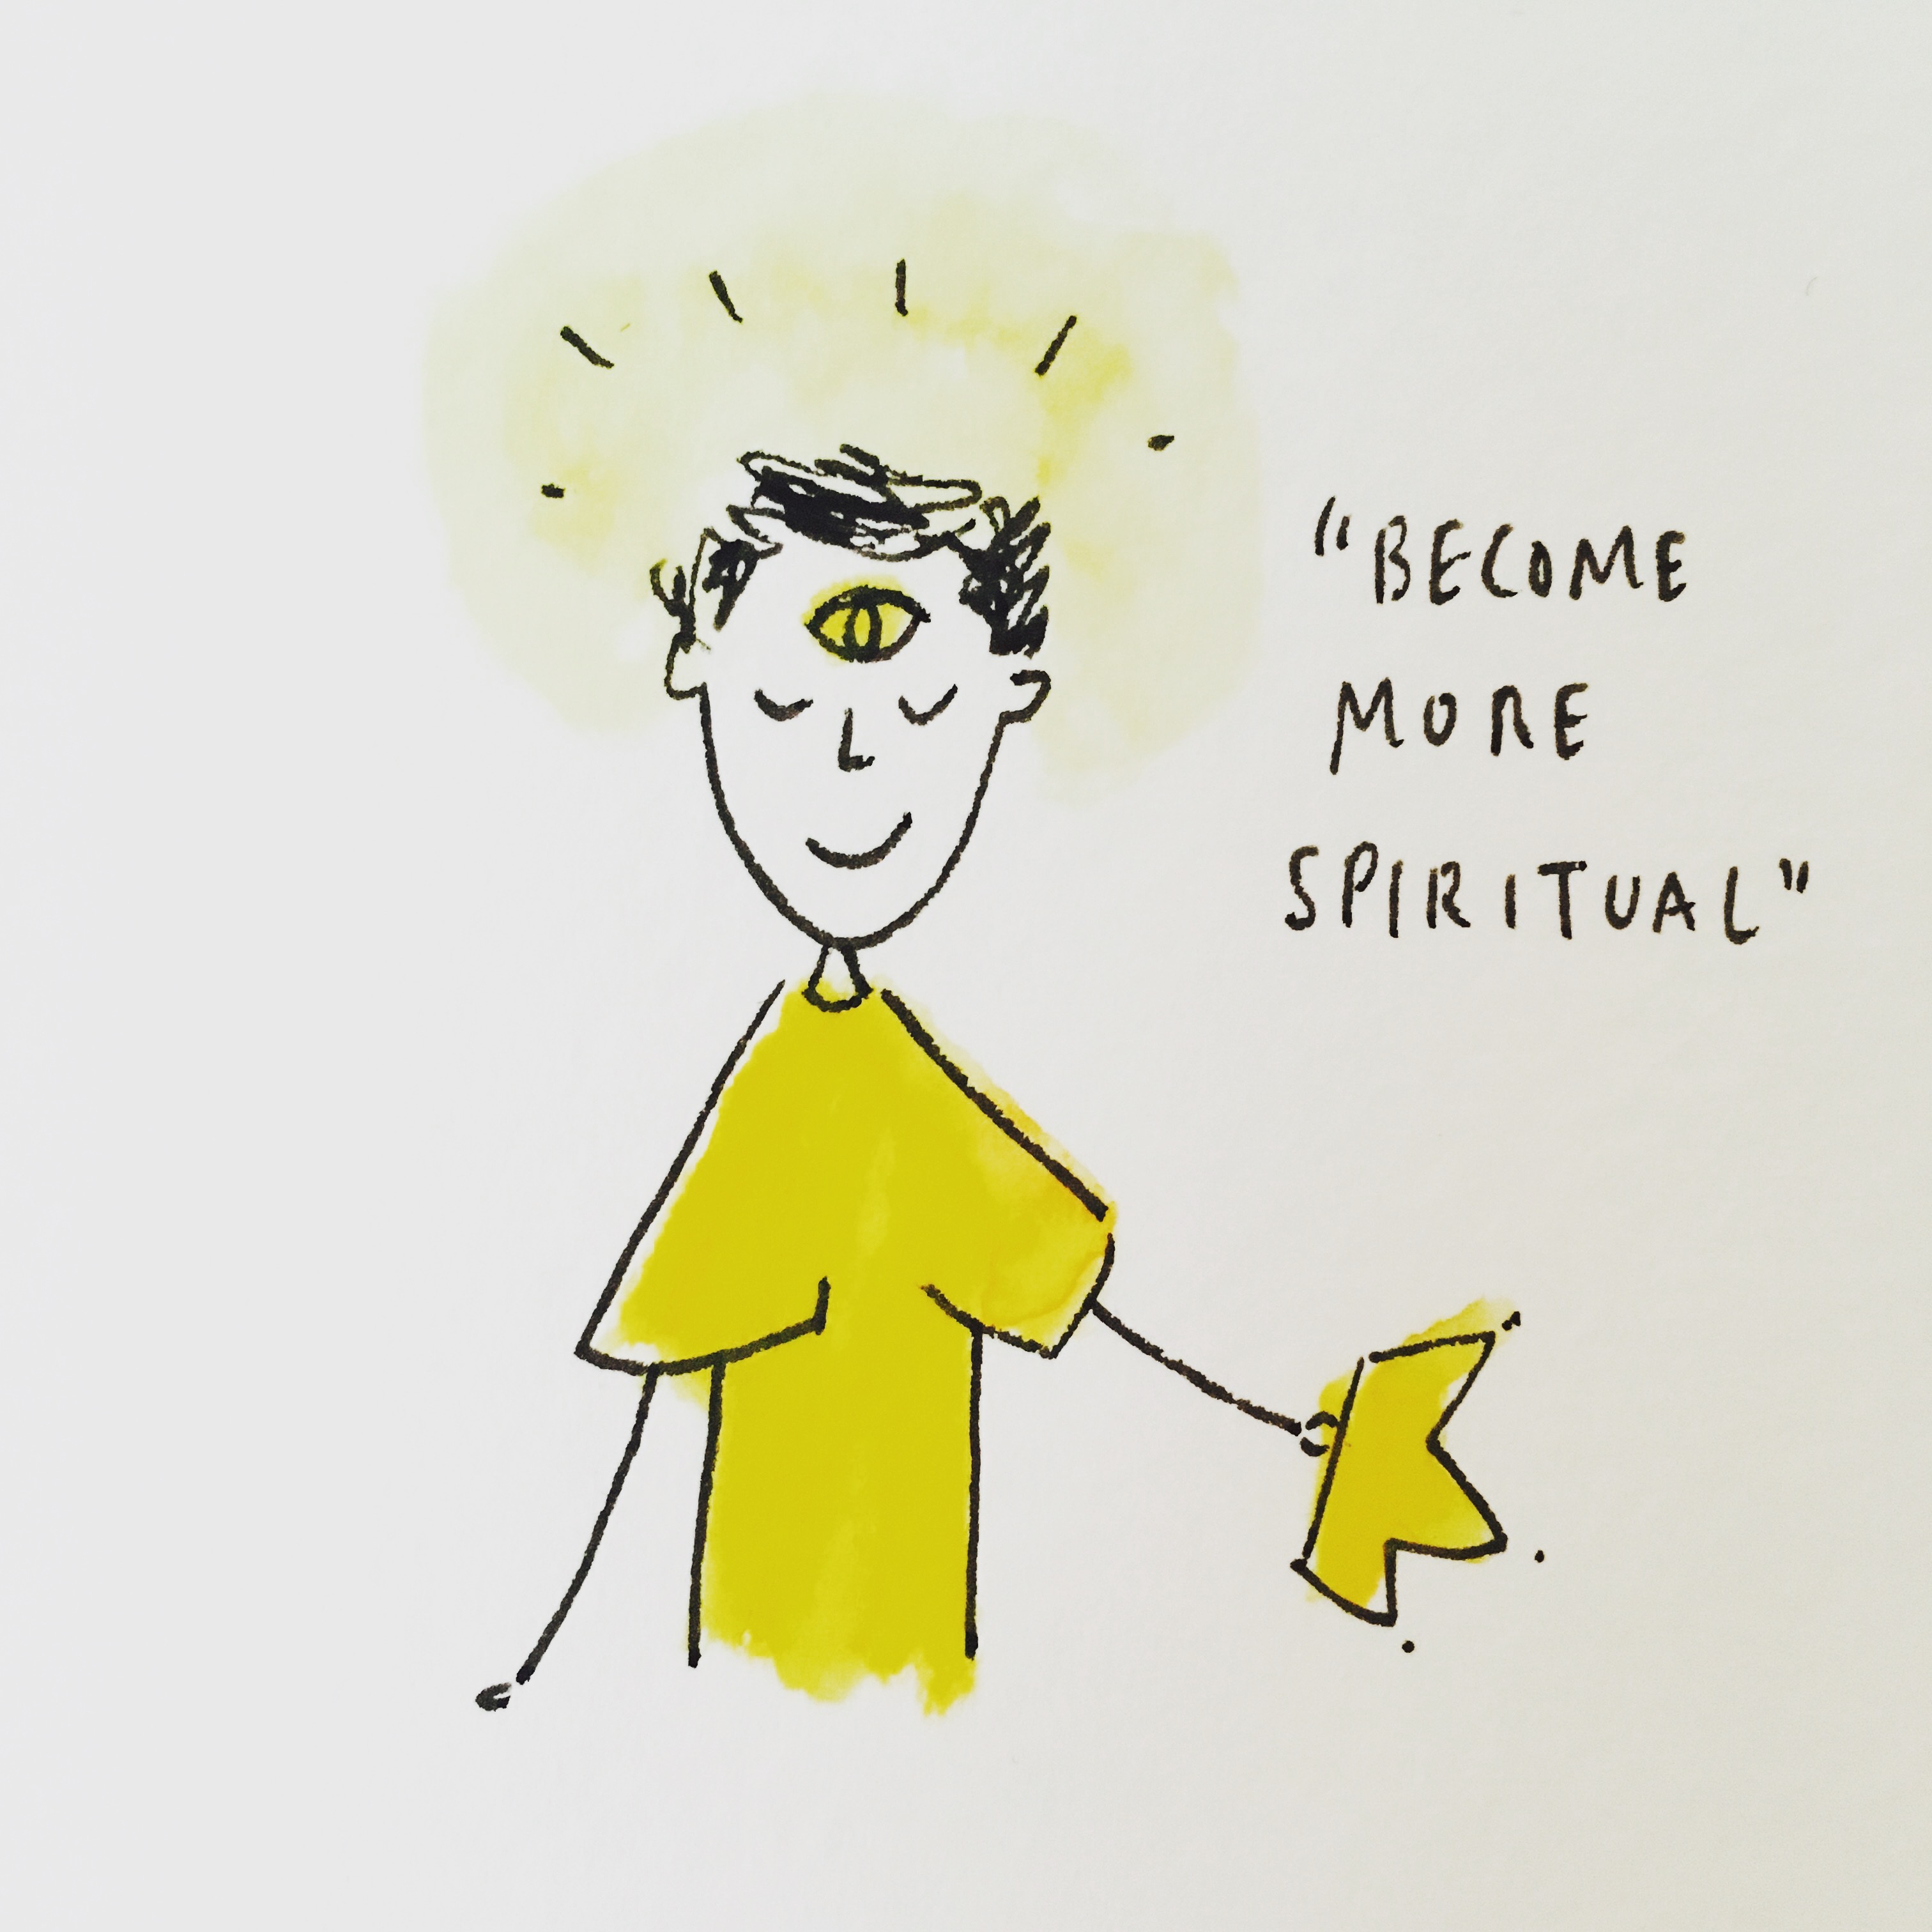 "BECOME
MORE
SPIRITUAL"